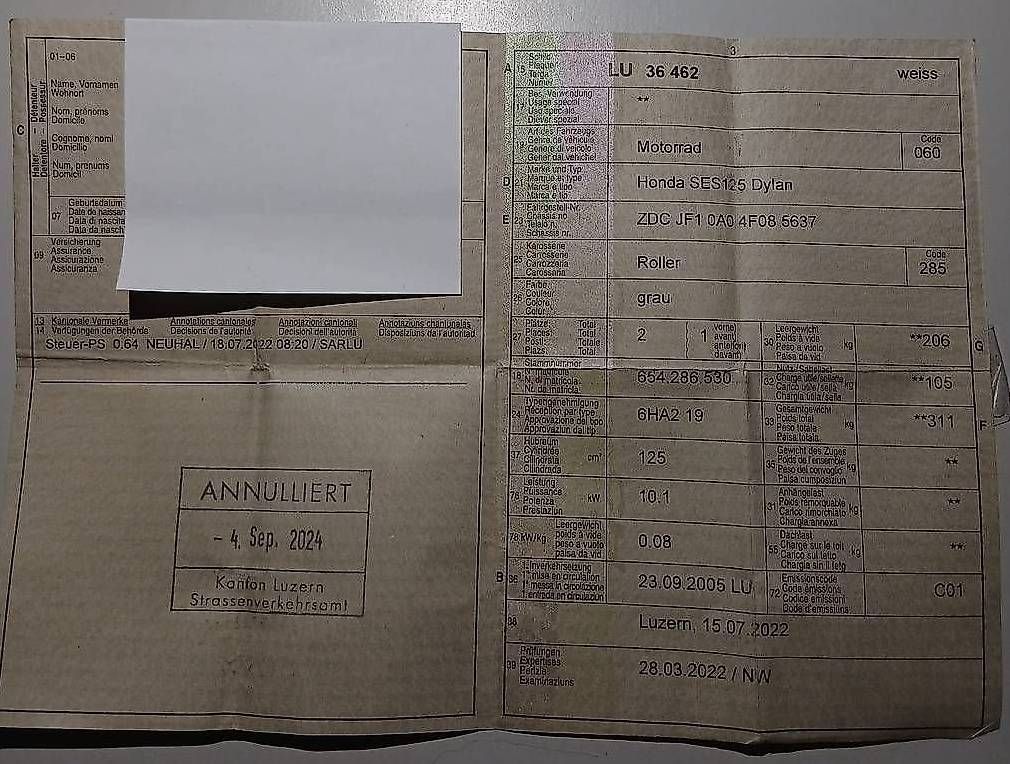 01–06
C
Halter – Détenteur
Detentore – Possessur
Name, Vornamen
Wohnort
Nom, prénoms
Domicile
Cognome, nomi
Domicilio
Num, prenums
Domicil
07
Geburtsdatum
Date de
Data di nascita
Data da
09
Versicherung
Assurance
Assicurazione
Assicuranza
13
14
Kantonale Vermerke
Verfügungen der Behörde
Annotations cantonales
Décisions de l'autorité
Annotazioni cantonali
Decisioni dell'autorità
Annotaziuns chantunalas
Disposiziuns da l'autoritad
Steuer-PS 0.64 NEUHAL / 18.07.2022 08:20 / SARLU
ANNULLIERT
– 4. Sep. 2024
Kanton Luzern
Strassenverkehrsamt
3
A 15
Schild
Plaque
Targa
Numer
LU 36 462
weiss
Bes. Verwendung
Usage spécial
Uso speciale
Diever spezial
**
19
Art des Fahrzeugs
Genre de véhicule
Genere di veicolo
Gener dal vehichel
Motorrad
Code
060
D 21
Marke und Typ
Marque et type
Marca e tipo
Marca e tip
Honda SES125 Dylan
E 23
Fahrgestell-Nr.
Châssis no
Telaio n.
Schassis nr.
ZDC JF1 0A0 4F08 5637
25
Karosserie
Carrosserie
Carrozzeria
Carossaria
Roller
Code
285
26
Farbe
Couleur
Colore
Colur
grau
27
Plätze: Total
Places: Total
Posti: Totale
Plazs: Total
2
1
vorne)
avant)
anteriori)
davant)
30
Leergewicht
Poids à vide
Peso a vuoto
Paisa da vid
kg
**206
G
18
Stammnummer
N. di matricola
Nr. da matricla
654.286.530
32
Nutz-/Sattellast
Charge utile/sellette
Carico utile/sella
Chargia utila/sella
kg
**105
24
Typengenehmigung
Réception par type
Approvazione del tipo
Approvaziun dal tip
6HA2 19
33
Gesamtgewicht
Poids total
Peso totale
Paisa totala
kg
**311
F
37
Hubraum
Cylindrée
Cilindrata
Cilindrada
cm³
125
35
Gewicht des Zuges
Poids de l'ensemble
Peso del convoglio
Paisa cumposiziun
kg
**
76
Leistung
Puissance
Potenza
Prestaziun
kW
10.1
31
Anhängelast
Poids remorquable
Carico rimorchiato
Chargia annexa
kg
**
78 kW/kg
Leergewicht
poids à vide
peso a vuoto
paisa da vid
0.08
55
Dachlast
Charge sur le toit
Carico sul tetto
Chargia sin il tetg
kg
**
B 36
1. Inverkehrsetzung
1re mise en circulation
1. messa in circolazione
1. entrada en circulaziun
23.09.2005 LU
72
Emissionscode
Code émissions
Codice emissioni
Code d'emissiuns
C01
38
Luzern, 15.07.2022
39
Prüfungen
Expertises
Perizie
Examinaziuns
28.03.2022 / NW